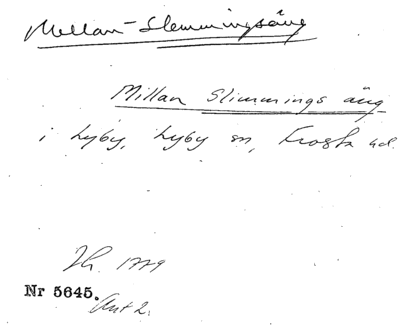 Mellan-Slemmingsäng
Millan Slimmings äng
i Lyby, Lyby sn, Frosta hd.
1779
Nr 5645.
Akt 2.